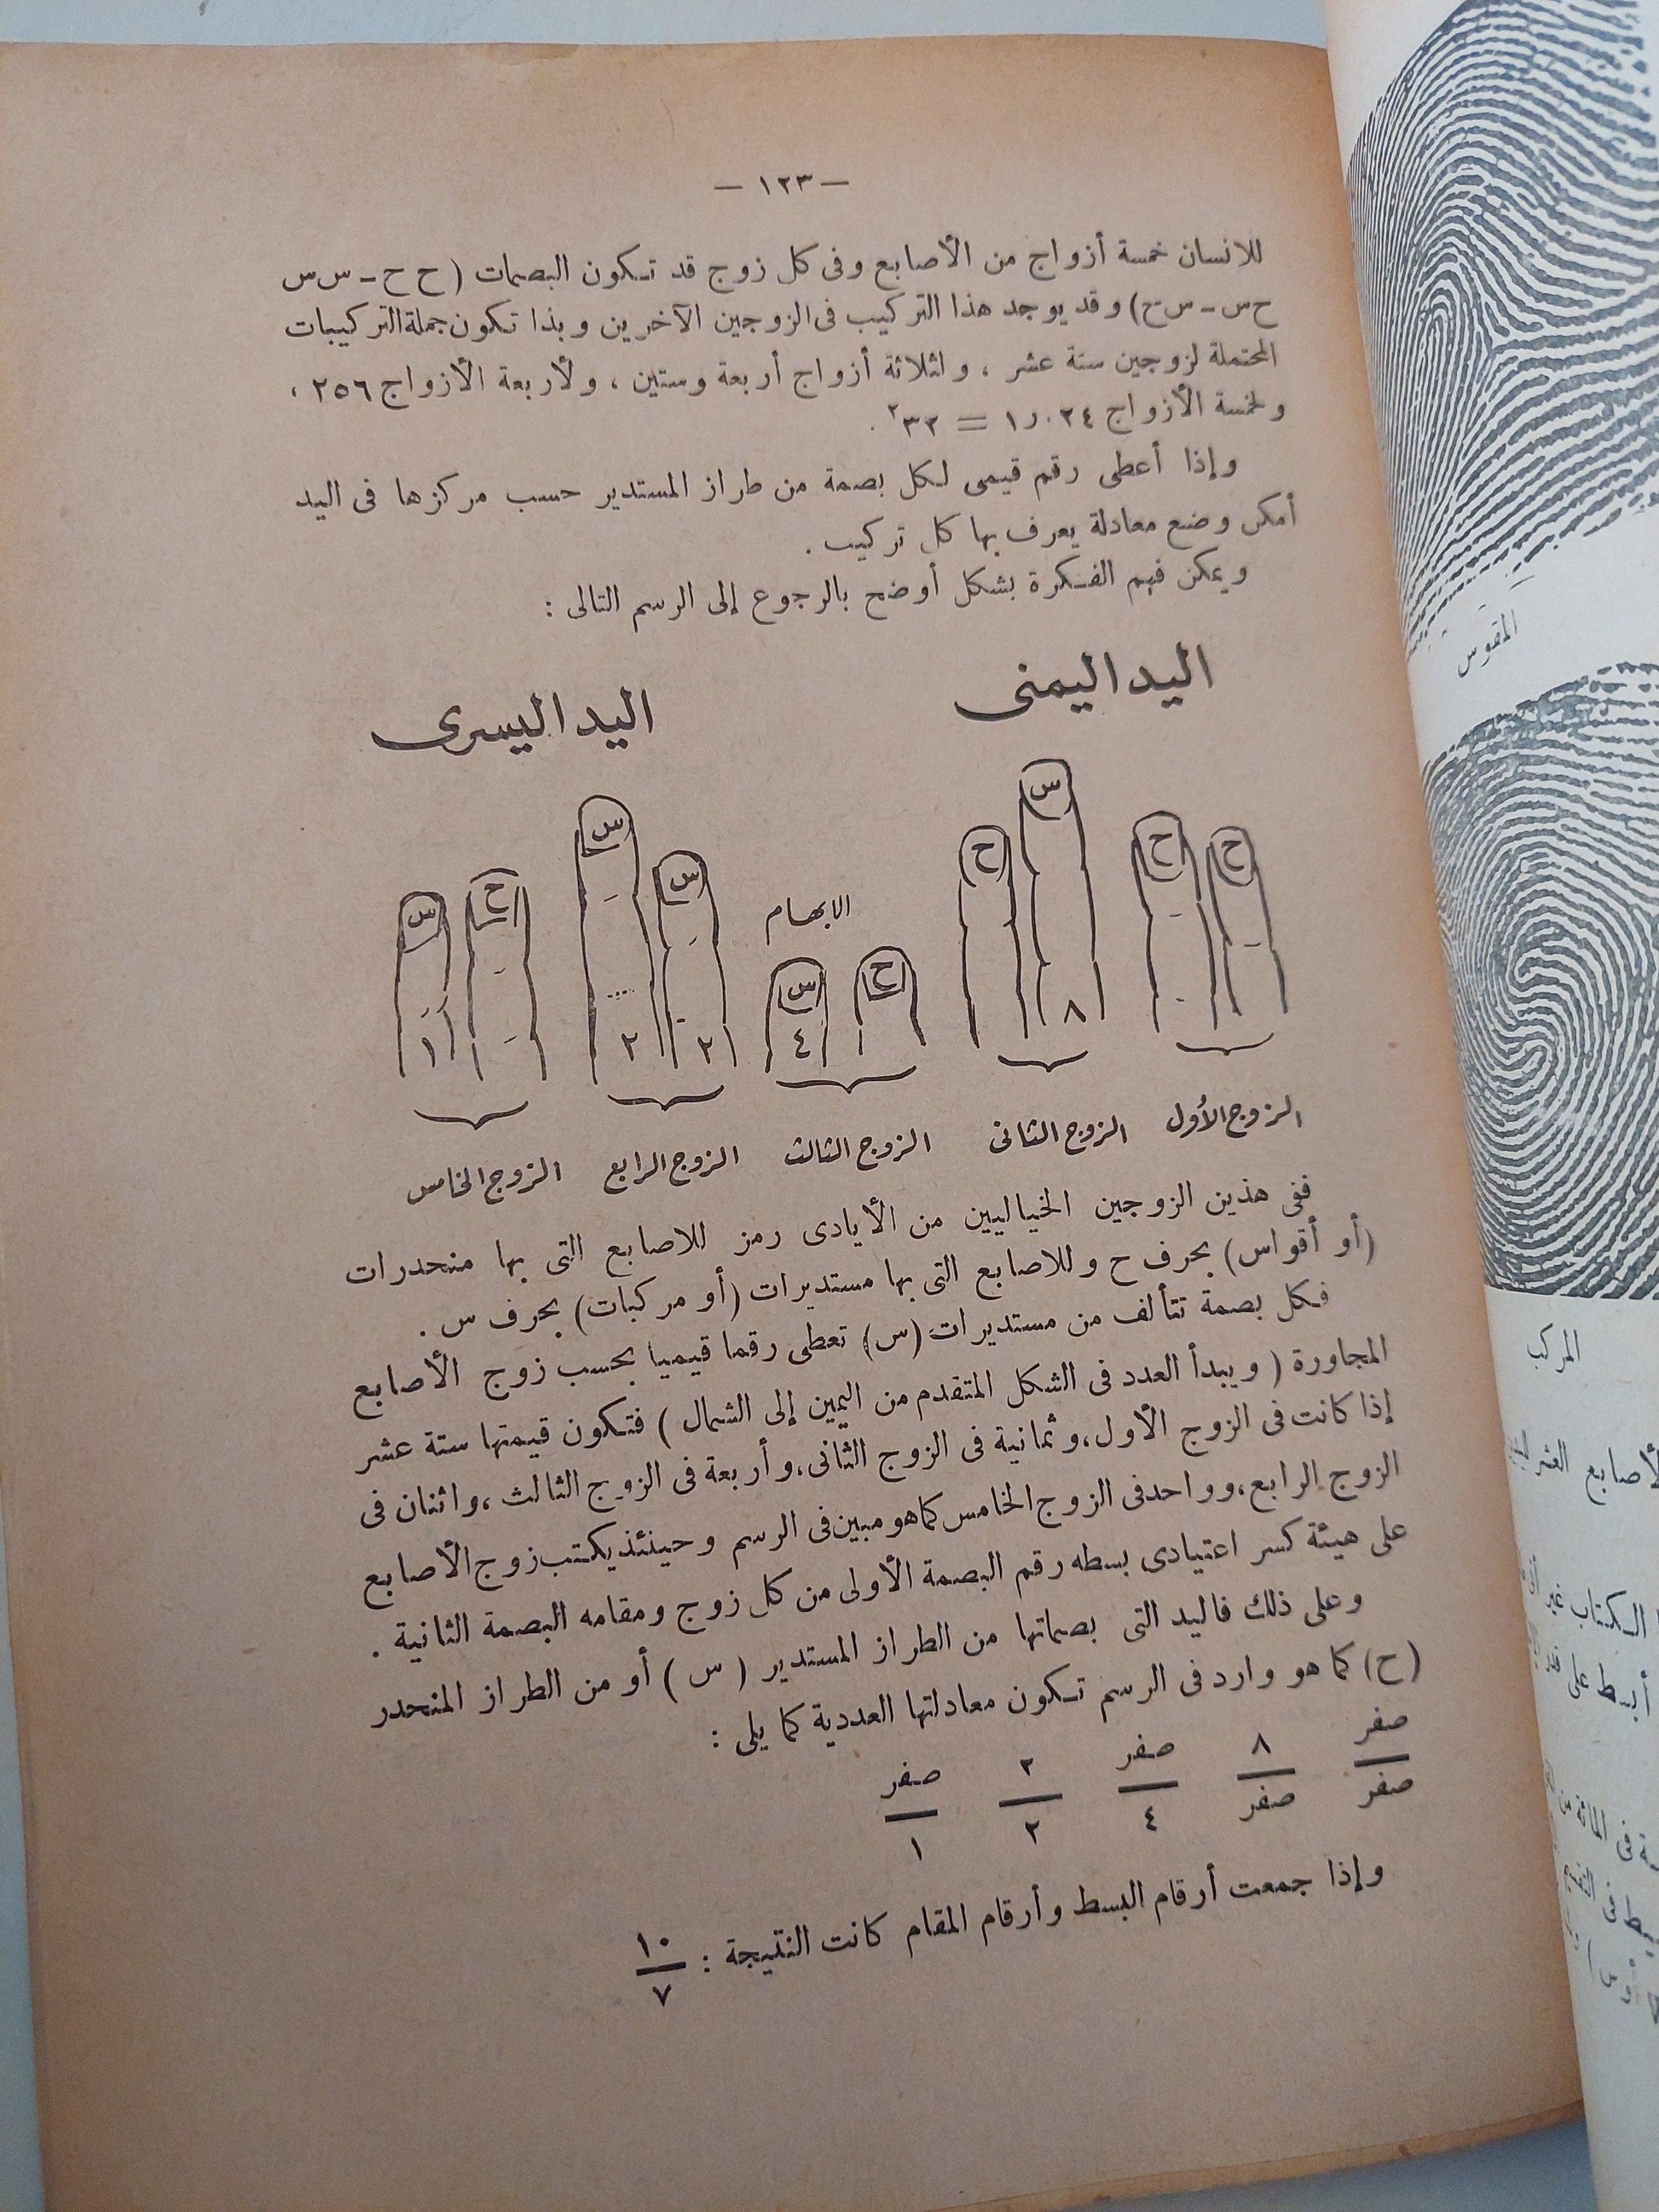 — ١٢٣ —
للانسان خمسة أزواج من الأصابع وفى كل زوج قد تكون البصمات ( ح ح ـ س س
ح س ـ س ح ) وقد يوجد هذا التركيب فى الزوجين الآخرين وبذا تكون جملة التركيبات
المحتملة لزوجين ستة عشر ، ولثلاثة أزواج أربعة وستين ، ولأربعة الأزواج ٢٥٦ ،
ولخمسة الأزواج ١٫٠٢٤ = ٣٢٢ .
وإذا أعطى رقم قيمى لكل بصمة من طراز المستدير حسب مركزها فى اليد
أمكن وضع معادلة يعرف بها كل تركيب .
ويمكن فهم الفكرة بشكل أوضح بالرجوع إلى الرسم التالى :
اليد اليمنى
اليد اليسرى
ح ح س ح ح س س س ح س
الابهام
٨ ٤ ٢ ٢ ١
الزوج الأول الزوج الثانى الزوج الثالث الزوج الرابع الزوج الخامس
ففى هذين الزوجين الخياليين من الأيادى رمز للاصابع التى بها منحدرات
(أو أقواس) بحرف ح وللاصابع التى بها مستديرات (أو مركبات) بحرف س .
فكل بصمة تتألف من مستديرات (س) تعطى رقما قيميا بحسب زوج الأصابع
المجاورة ( ويبدأ العدد فى الشكل المتقدم من اليمين إلى الشمال ) فتكون قيمتها ستة عشر
إذا كانت فى الزوج الأول، وثمانية فى الزوج الثانى، وأربعة فى الزوج الثالث ، واثنان فى
الزوج الرابع، وواحد فى الزوج الخامس كما هو مبين فى الرسم وحينئذ يكتب زوج الأصابع
على هيئة كسر اعتيادى بسطه رقم البصمة الأولى من كل زوج ومقامه البصمة الثانية .
وعلى ذلك فاليد التى بصماتها من الطراز المستدير ( س ) أو من الطراز المنحدر
(ح) كما هو وارد فى الرسم تكون معادلتها العددية كما يلى :
صفر ٨ صفر ٢ صفر
صفر صفر ٤ ٢ ١
وإذا جمعت أرقام البسط وأرقام المقام كانت النتيجة : ١٠
٧
المقوس
المركب
الأصابع العشر
الكتاب غير
أبسط على